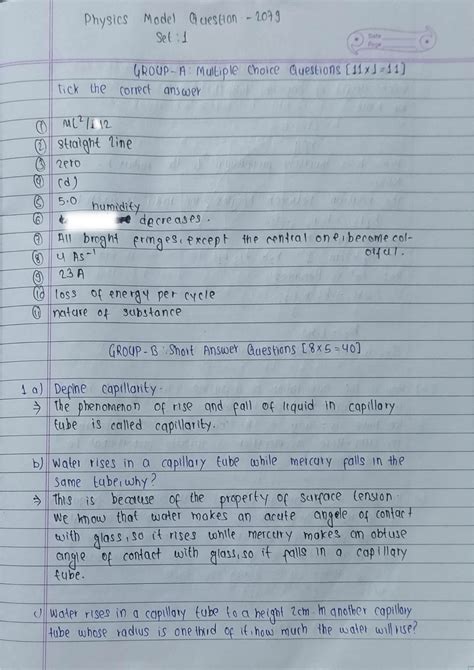 Physics Model Question - 2079
Set : 1
Date
Page
GROUP-A: Multiple Choice Questions [11x1=11]
tick the correct answer
① ML²/ 12
② straight line
③ zero
④ (d)
⑤ 5.0
⑥ humidity decreases.
⑦ All broght fringes, except the central one, become col-
oiful.
⑧ 4 As⁻¹
⑨ 23 A
⑩ loss of energy per cycle
⑪ nature of substance
GROUP-B: Short Answer Questions [8x5=40]
1 a) Define capillarity.
→ The phenomenon of rise and fall of liquid in capillary
tube is called capillarity.
b) Water rises in a capillary tube while mercury falls in the
same tube, why?
→ This is because of the property of surface tension.
We know that water makes an acute angele of contact
with glass, so it rises while mercury makes an obtuse
angle of contact with glass, so it falls in a capillary
tube.
c) Water rises in a capillary tube to a height 2cm. In another capillary
tube whose radius is one third of it, how much the water will rise?